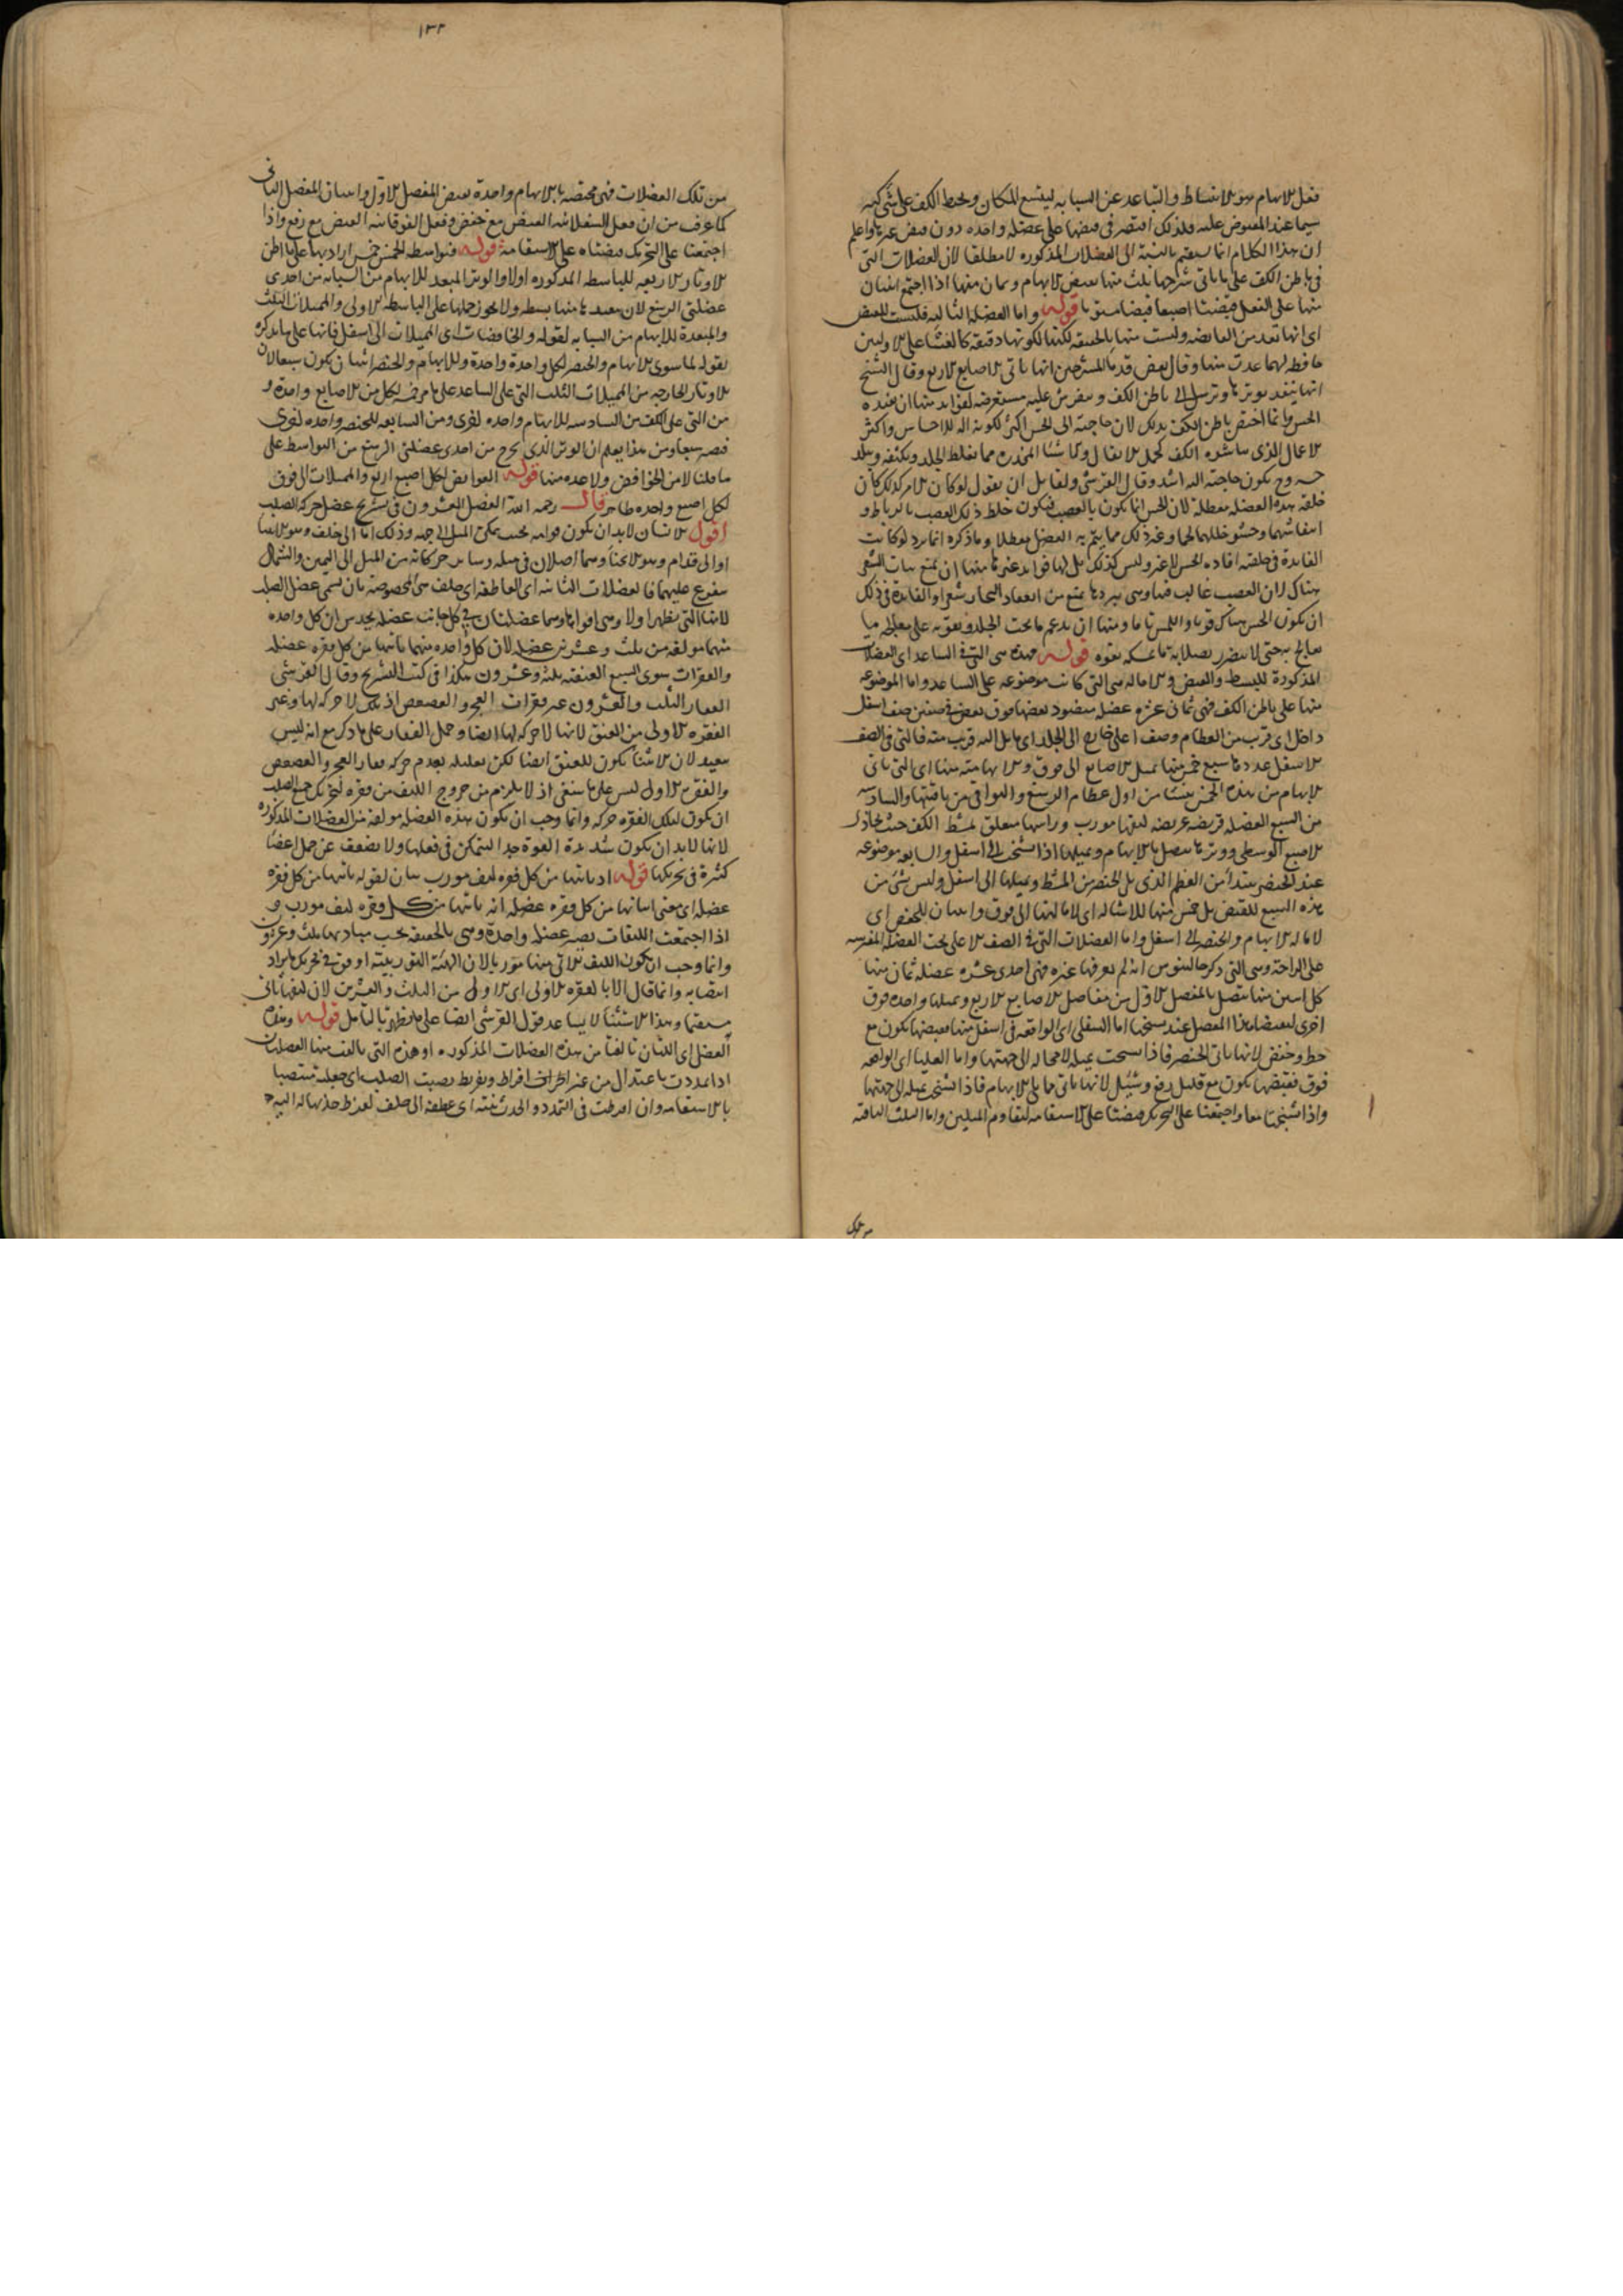 فعل الابهام هو الانبساط والتباعد عن السبابه ليتسع المكان ويحيط الكف على شى كبير
سيما عند المقبوض عليه فلذلك اقتصر فى قبضها على عضله واحده دون قبض غيرها واعلم
ان هذا الكلام انما يستقيم بالنسبة الى العضلات المذكوره لا مطلقا لان العضلات التى
فى باطن الكف على ما ياتى شرحها ثلث منها تقبض الابهام وثمان منها اذا اجتمع اثنان
منها على الفعل قبضتا اصبعا قبضا مستويا قوله واما العضلة الثالثه فليست للقبض
اى انها تعد من القابضه وليست منها بالحقيقه لكنها لكونها دقيقه كالغشا على الاولين
حافظ لهما عدت منها وقال بعض قدما المشرحين انها تاتى الاصابع الاربع وقال الشيخ
انها تنفذ بوترها وترسل الى باطن الكف وتنفرش عليه مستعرضه لفوايد منها ان تفيده
الحس وانما اختص باطن الكف بذلك لان حاجته الى الحس اكثر لكونه اله للاحساس واكثر
الاعمال الذى يباشره الكف كحمل الاثقال ومما يغلظ الجلد ويكثفه ويبلد
حسه وح يكون حاجته اليه اشد وقال القرشى ولقايل ان يقول لو كان الامر كذلك كان
خلقه هذه العضله معطله لان الحس انما يكون بالعصب فيكون خلط ذلك العصب بالرباط و
انفاشهما وحشو خللهما لحما وغير ذلك مما يتم به العضل معطلا وما ذكره انما يرد لو كانت
الفايده فى خلقته افاده الحس لا غير وليس كذلك بل لها فوايد غيرها منها ان تمنع نبات الشعر
هناك لان العصب غالب فيها وهى ببردها تمنع من انعقاد البخار شعرا والفايدة فى ذلك
ان يكون الحس هناك قويا واللمس تاما ومنها ان تدعم ما تحت الجلد وتقويه على معالجه ما
يعالج به حتى لا يتضرر بصلابة ما يمسكه بقوه قوله فهذه هى التى فى الساعد اى العضلات
المذكورة للبسط والقبض والاماله هى التى كانت موضوعه على الساعد واما الموضوعه
منها على باطن الكف فهى ثمان عشره عضله منضود بعضها فوق بعض فى صفين صف اسفل
داخل اى قرب من العظام وصف اعلى خارج الى الجلد اى مايل اليه قريب منه فالتى فى الصف
الاسفل عددها سبع خمس منها تميل الاصابع الى فوق والابهاميه منها اى التى تاتى
الابهام من هذه الخمس تنشا من اول عظام الرسغ والبواقى من باقيتها والسادسه
من السبع العضله قريضه عريضه ليفها مورب وراسها متعلق بمشط الكف حيث يحاذى
الاصبع الوسطى ووترها متصل بالابهام وتميلها اذا تشنجت الى اسفل والسابعه موضوعه
عند الخنصر تبتدا من العظم الذى يلى الخنصر من المشط وتميلها الى اسفل وليس شى من
هذه السبع للقبض بل خمس منها للاشاله اى لامالتها الى فوق واثنان للخفض اى
لاماله الابهام والخنصر الى اسفل واما العضلات التى فى الصف الاعلى تحت العضله المفترشه
على الراحة وهى التى ذكر جالينوس انه لم يعرفها غيره فهى احدى عشره عضله ثمان منها
كل اثنين منها تتصل بالمفصل الاول من مفاصل الاصابع الاربع وتميلها واحده فوق
اخرى ليقبضا هذا المفصل عند تشنجها اما السفلى اى الواقعه فى اسفل منها فقبضها يكون مع
حط وخفض لانها تاتى الخنصر فاذا تشنجت تميله لا محاله الى جهتها واما العليا اى الواقعه
فوق فقبضها يكون مع قليل رفع وشيل لانها تاتى مما يلى الابهام فاذا تشنجت تميله الى جهتها
واذا تشنجتا معا واجتمعتا على التحريك قبضتا على الاستقامه لتقاوم الميلين واما الثلث الباقيه
١٣٢
من تلك العضلات فهى مختصه بالابهام واحدة تقبض المفصل الاول واثنان المفصل الثانى
كما عرف من ان فعل السفلانيه القبض مع خفض وفعل الفوقانيه القبض مع رفع واذا
اجتمعتا على التحريك قبضتاه على الاستقامة قوله فبواسط الخمس خمس اراد بها على ما ظن
الاوتار الاربعه للباسطه المذكوره اولا والوتر المبعد للابهام من السبابه من احدى
عضلتى الرسغ لان تبعيدها منها بسطه ولا يجوز حملها على الباسطه الاولى والمميلات الثلث
والمبعدة للابهام من السبابه لقوله والخافضات اى المميلات الى اسفل فانها على ما يذكره
بقوله لما سوى الابهام والخنصر لكل واحدة واحدة وللابهام والخنصر اثنان يكون سبعا لان
الاوتار الخارجه من المميلات الثلث التى على الساعد على ما عرفته لكل من الاصابع واحدة و
من التى على الكف من السادسه للابهام واحده اخرى ومن السابعه للخنصر واحده اخرى
فتصير سبعا ومن هذا يعلم ان الوتر الذى يخرج من احدى عضلتى الرسغ من البواسط على
ما قلنا لا من الخوافض ولا عده منها قوله القوابض لكل اصبع اربع والمميلات الى فوق
لكل اصبع واحده ظاهر قال رحمه الله الفصل العشرون فى تشريح عضل حركه الصلب
اقول الانسان لابد ان يكون قوامه بحيث يمكن الميل الى جهه وذلك اما الى خلف وهو الانثنا
او الى قدام وهو الانحنا وهما اصلان فى ميله وساير حركاته من الميل الى اليمين والشمال
متفرع عليهما فالعضلات الثانيه اى العاطفه اى خلف هى المخصوصة بان تسمى عضل الصلب
لانها التى تظهر اولا وهى اقواها وهما عضلتان فى كل جانب عضله يحدس ان كل واحده
منهما مولفه من ثلث وعشرين عضله لان كل واحده منهما ياتيها من كل فقره عضله
والفقرات سوى السبع العنقيه ثلثه وعشرون هكذا فى كتب التشريح وقال القرشى
الفقار الثلث والعشرون غير فقرات العجز والعصعص اذ تلك لا حركه لها وغير
الفقره الاولى من العنق لانها لا حركه لها ايضا وحمل الفقار على ما ذكر مع انه ليس
ببعيد لان الانثنا يكون للعنق ايضا لكن تعليله بعدم حركه فقار العجز والعصعص
والفقره الاولى ليس على ما ينبغى اذ لا يلزم من خروج الليف من فقره لتحريك جميع الصلب
ان يكون لتلك الفقره حركه وانما وجب ان يكون هذه العضله مولفه من العضلات المذكوره
لانها لابد ان يكون شديدة القوة جدا ليتمكن فى فعلها ولا يضعف عن حمل اعضا
كثيرة فى تحريكها قوله اذ ياتيها من كل فقره ليف مورب بيان لقوله ياتيها من كل فقره
عضله اى معنى اتيانها من كل فقره عضله انه ياتيها من كل فقره ليف مورب و
اذا اجتمعت الليفات يصير عضله واحدة وهى بالحقيقه بحسب مباديها ثلث وعشرون
وانما وجب ان يكون الليف الاتى منها موربا لان الهيئة التوريبيه اوفق فى تحريك ما يراد
انتصابه وانما قال الا الفقره الاولى اى الاولى من الثلث والعشرين لان ليفها ياتى
مستقيما وهذا الاستثنا لا يساعد قول القرشى ايضا على ما يظهر بالتامل قوله وهذا
العضل اى اللتان تالفتا من هذه العضلات المذكوره او هذه التى تالفت منها العضلتان
اذا تمددت باعتدال من غير اطراف افراط وتفريط نصبت الصلب اى جعلته منتصبا
بالاستقامه وان افرطت فى التمدد والجذب ثنته اى عطفته الى خلف لفرط جذبها له اليه